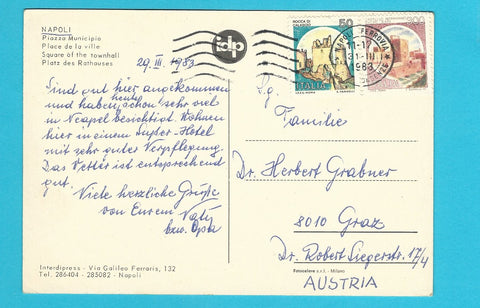 NAPOLI
Piazza Municipio
Place de la ville
Square of the townhall
Platz des Rathauses
29. III. 1983
Sind gut hier angekommen
und haben heute schon sehr viel
in Neapel besichtigt. Wohnen
hier in einem Super-Hotel
mit sehr guter Verpflegung.
Das Wetter ist entsprechend
gut.
Viele herzliche Grüße
von Eurem Vati
bzw. Opa
Interdipress - Via Galileo Ferraris, 132
Tel. 286404 - 285082 - Napoli
idp
ROCCA DI
CALASCIO
50
ITALIA
NAPOLI FERROVIA
11-17
1983
Familie
Dr. Herbert Grabner
8010 Graz
Dr. Robert Siegerstr. 17/4
AUSTRIA
Fotocelere s.r.l. - Milano